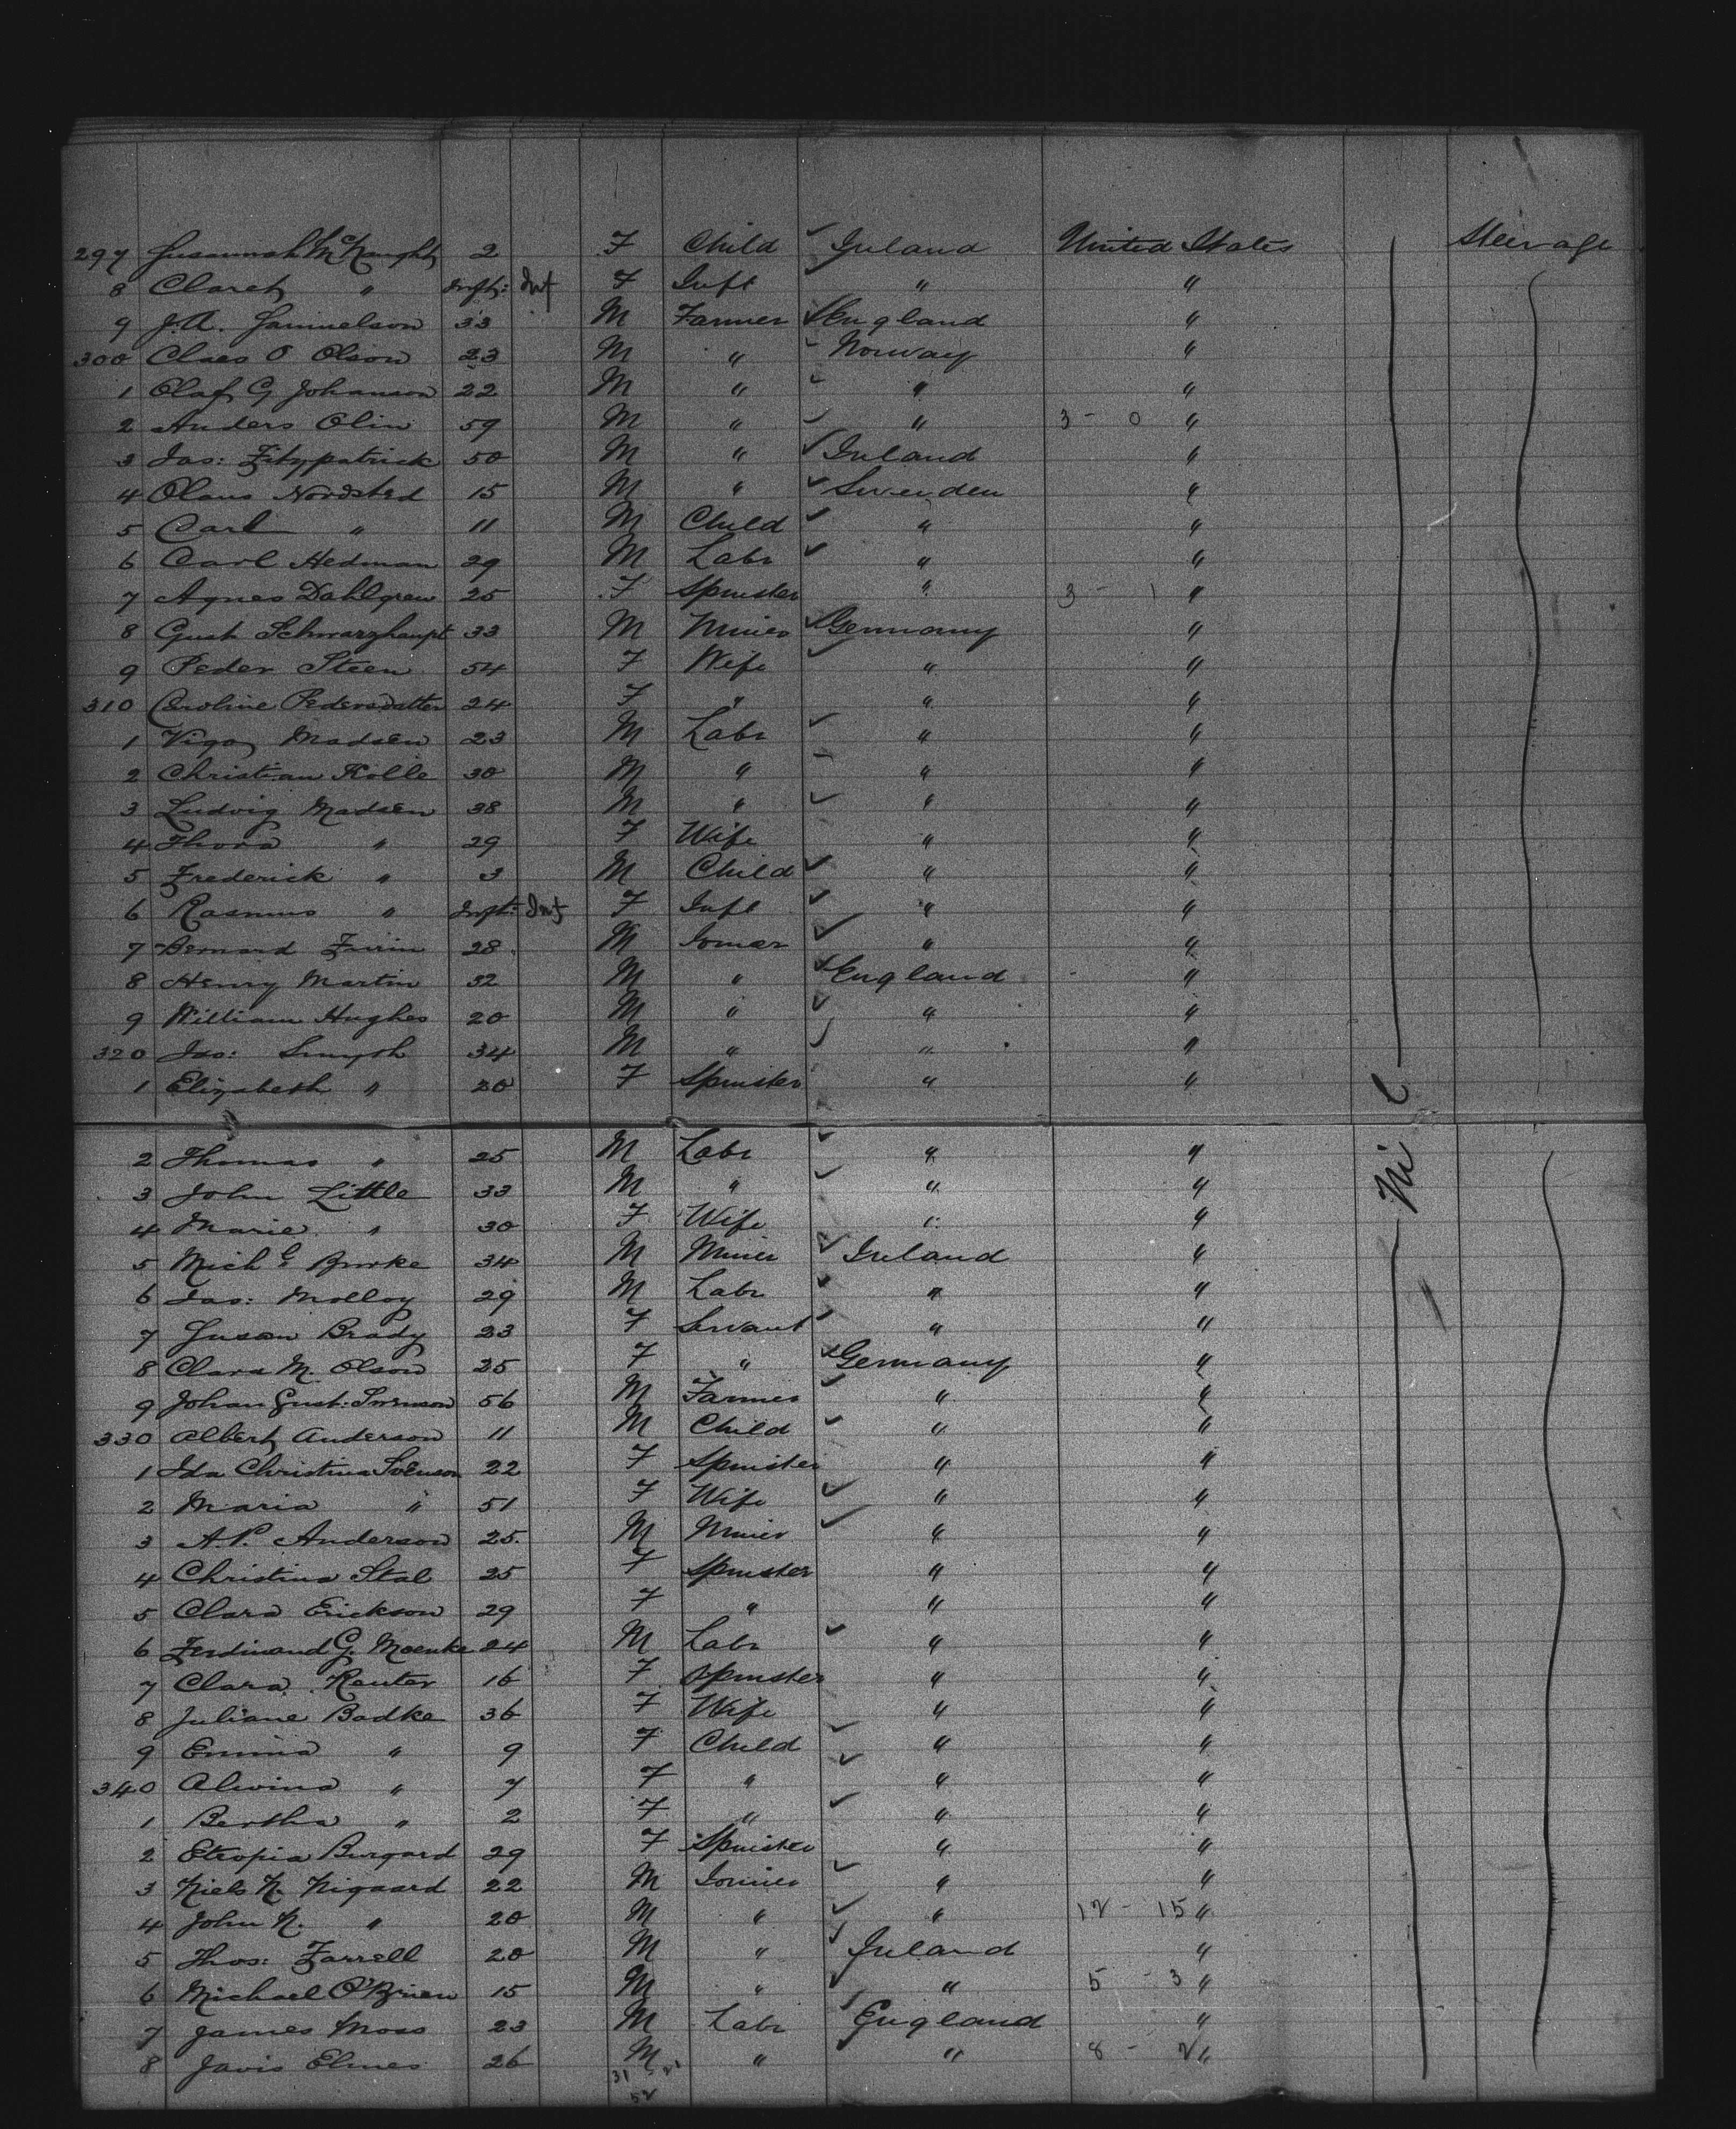 297 Susannah McNaught 2 F Child ✓ Ireland United States Steerage
8 Claret " Infts: Inf F Inft " "
9 J.A. Samuelson 33 M Farmer ✓ England "
300 Claes O Olson 23 M " Norway "
1 Olaf G Johanson 22 M " ✓ " "
2 Anders Olin 59 M " ✓ " 3 - 0 "
3 Jas: Fitzpatrick 50 M " ✓ Ireland "
4 Olaus Nordsted 15 M " ✓ Sweden "
5 Carl " 11 M Child ✓ " "
6 Carl Hedman 29 M Labr ✓ " "
7 Agnes Dahlgren 25 F Spinster " 3 - 1 "
8 Gust Schwarzhaupt 33 M Miner ✓ Germany "
9 Peder Steen 54 F Wife ✓ " "
310 Caroline Pedersdatter 24 F " " "
1 Vigo Madsen 23 M Labr ✓ " "
2 Christian Kolle 30 M " " "
3 Ludvig Madsen 38 M " ✓ " "
4 Thora " 29 F Wife " "
5 Frederick " 3 M Child ✓ " "
6 Rasmus " Infts: Inf F Inft ✓ " "
7 Bernard 28 M ✓ " "
8 Henry Martin 32 M " ✓ England "
9 William Hughes 20 M " ✓ " "
320 Jas: Smyth 34 M " ✓ " "
1 Elizabeth " 20 F Spinster " "
2 Thomas " 25 M Labr ✓ " "
3 John Little 33 M " ✓ " "
4 Marie " 30 F Wife " "
5 Michl Burke 34 M Miner ✓ Ireland "
6 Jas: Molloy 29 M Labr ✓ " "
7 Susan Brady 23 F Servant ✓ " "
8 Clara M. Olson 25 F " ✓ Germany "
9 Johan Gust: Svenson 56 M Farmer ✓ " "
330 Albert Anderson 11 M Child ✓ " "
1 Ida Christina Svenson 22 F Spinster " "
2 Maria " 51 F Wife ✓ " "
3 A.P. Anderson 25 M Miner ✓ " "
4 Christina Stal 25 F Spinster " "
5 Clara Erickson 29 F " " "
6 Ferdinand G. Moenke 24 M Labr ✓ " "
7 Clara Reuter 16 F Spinster " "
8 Juliane Badke 36 F Wife " "
9 Emma " 9 F Child ✓ " "
340 Alwina " 7 F " ✓ " "
1 Bertha " 2 F " ✓ " "
2 Etropia Burgard 29 F Spinster " "
3 Niels N. Nigaard 22 M Joiner ✓ " "
4 John N. " 20 M " ✓ " 12 - 15 "
5 Thos: Farrell 20 M " ✓ Ireland "
6 Michael O'Brien 15 M " ✓ " 5 - 3 "
7 James Moss 23 M Labr ✓ England "
8 Javis Elmes 26 M " " 8 - 2 "
31 21
52
Nil